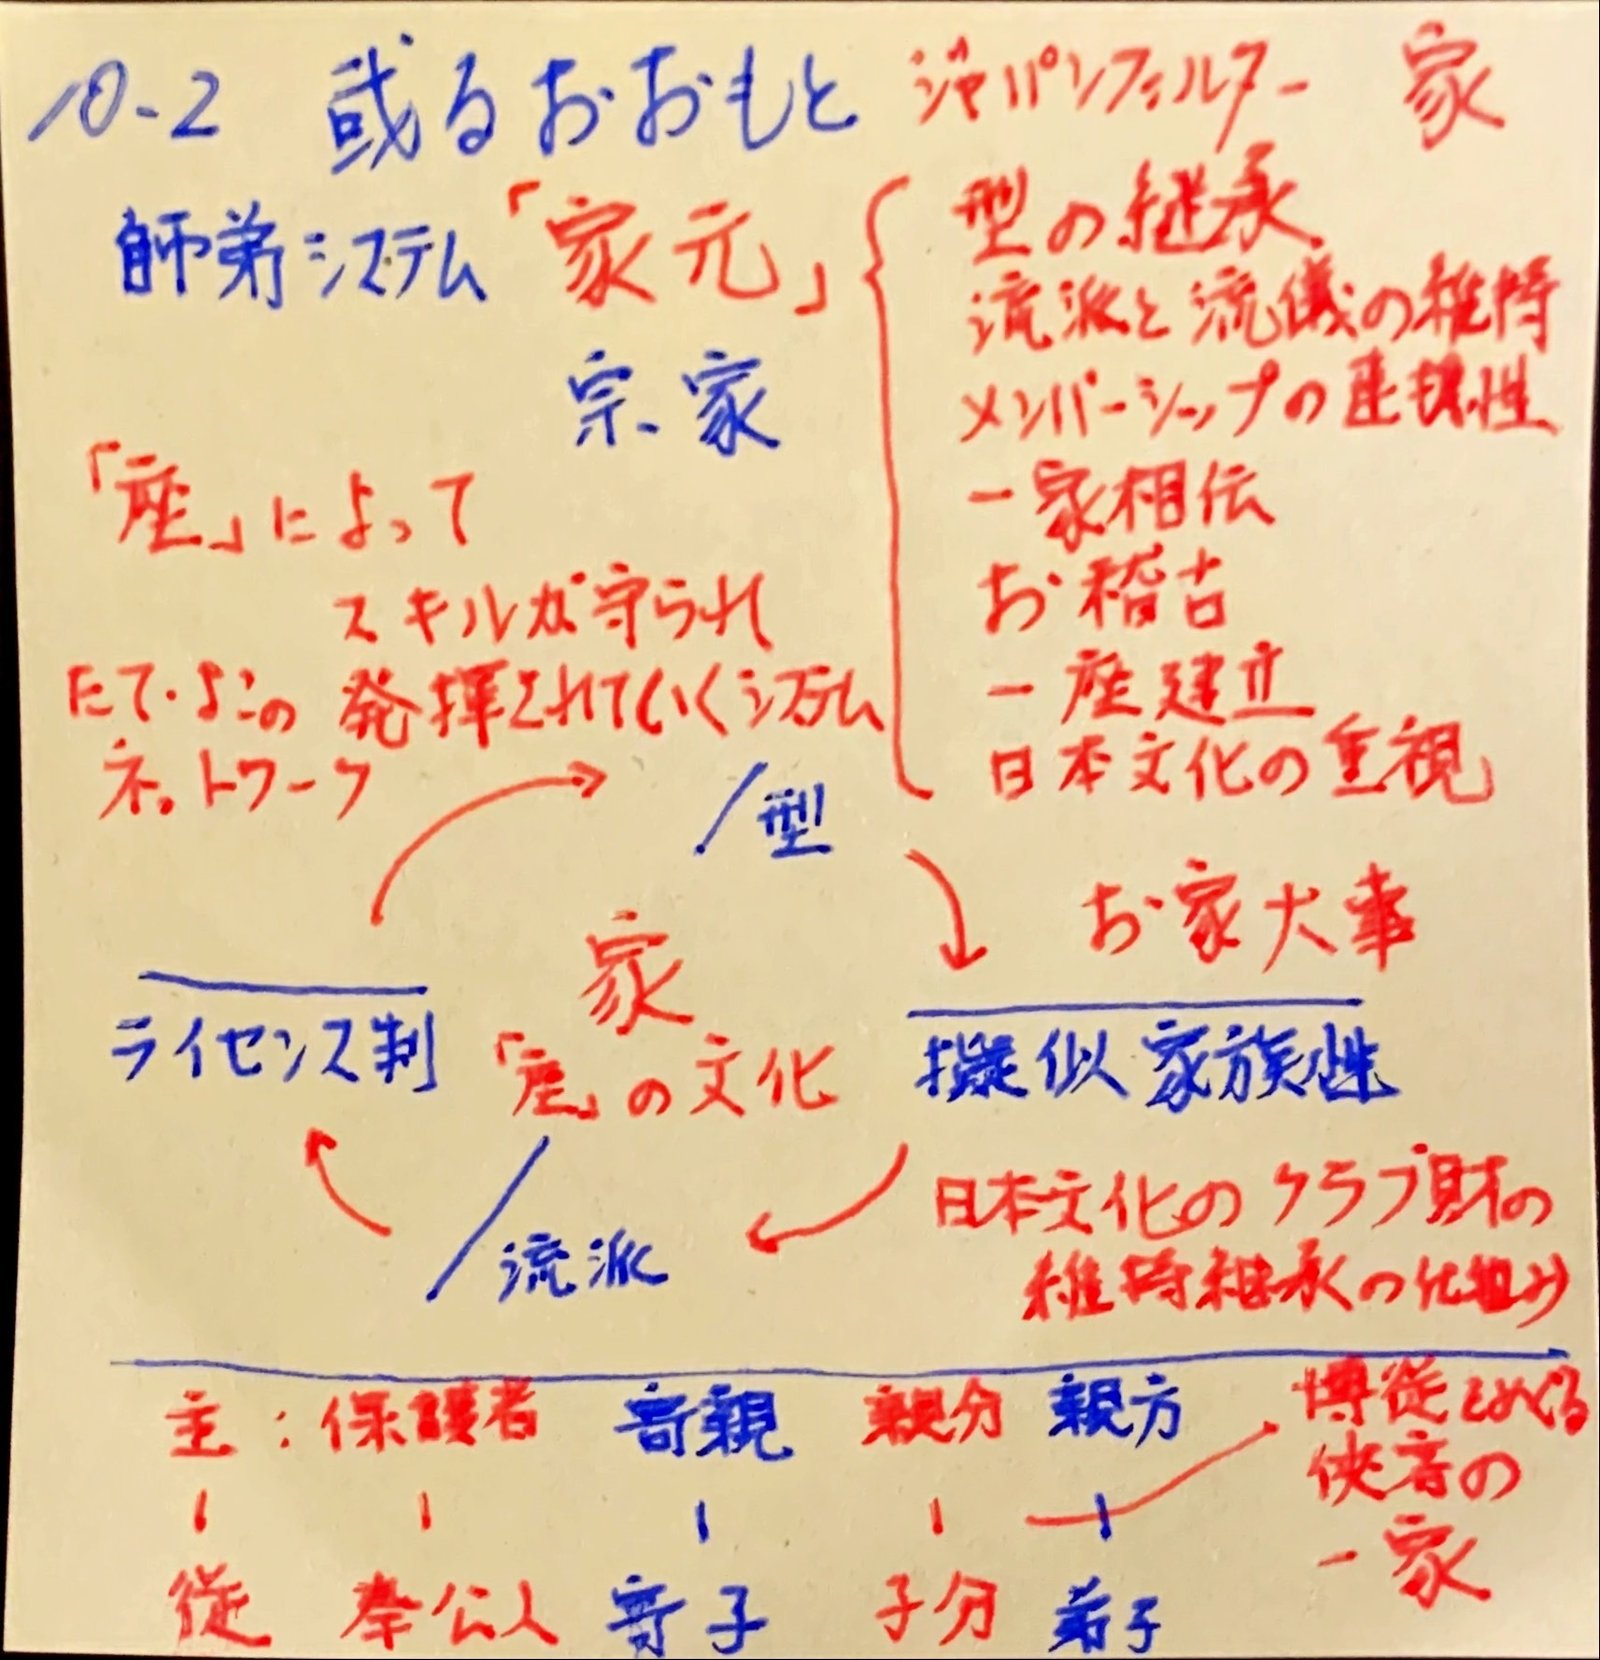 10-2 或るおおもと ジャパンフィルター 家
師弟システム「家元」
宗家
型の継承
流派と流儀の維持
メンバーシップの重視性
一家相伝
お稽古
一座建立
日本文化の重視
「座」によって
スキルが守られ
たて・よこの 発揮されていくシステム
ネットワーク
型
お家大事
家
「座」の文化
ライセンス制
擬似家族性
流派
日本文化のクラブ財の
維持継承の仕組み
主:保護者 寄親 親分 親方
従 奉公人 寄子 子分 弟子
博徒をめぐる
侠客の
一家